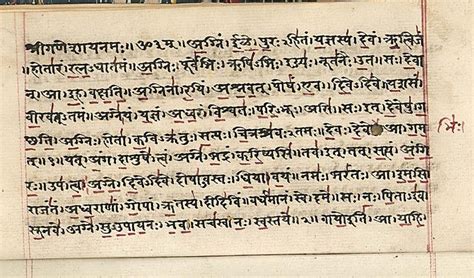 श्रीगणेशायनमः॥ॐ३म्॥अग्निं।ईळे।पुरःऽहितं।यज्ञस्य।देवं।ऋत्विजं
।होतारं।रत्नऽधातमं।अग्निः।पूर्वेभिः।ऋषिऽभिः।ईड्यः।नूतनैः।उत।सः।देवा
न्।आ।इह।वक्षति।अग्निना।रयिं।अश्नवत्।पोषं।एव।दिवेऽदिवे।यशसं
।वीरवत्ऽतमं।अग्ने।यं।यज्ञं।अध्वरं।विश्वतः।परिऽभूः।असि।सः।इत्।देवेषु।ग
च्छति।अग्निः।होता।कविऽक्रतुः।सत्यः।चित्रश्रवःऽतमः।देवः।देवे।आ।गम
भिः
त्॥१॥यत्।अंग।दाशुषे।त्वं।अग्ने।भद्रं।करिष्यसि।तव।इत्।तत्।सत्यं।अंगि
रः।उप।त्वा।अग्ने।दिवेऽदिवे।दोषाऽवस्तः।धिया।वयं।नमः।भरंतः।आ।इमसि।
राजंतं।अध्वराणां।गोपां।ऋतस्य।दीदिविं।वर्धमानं।स्वे।दमे।सः।नः।पिताऽइव
सूनवे।अग्ने।सुऽउपायनः।भव।सचस्व।नः।स्वस्तये॥२॥वायो इति।आ।याहि